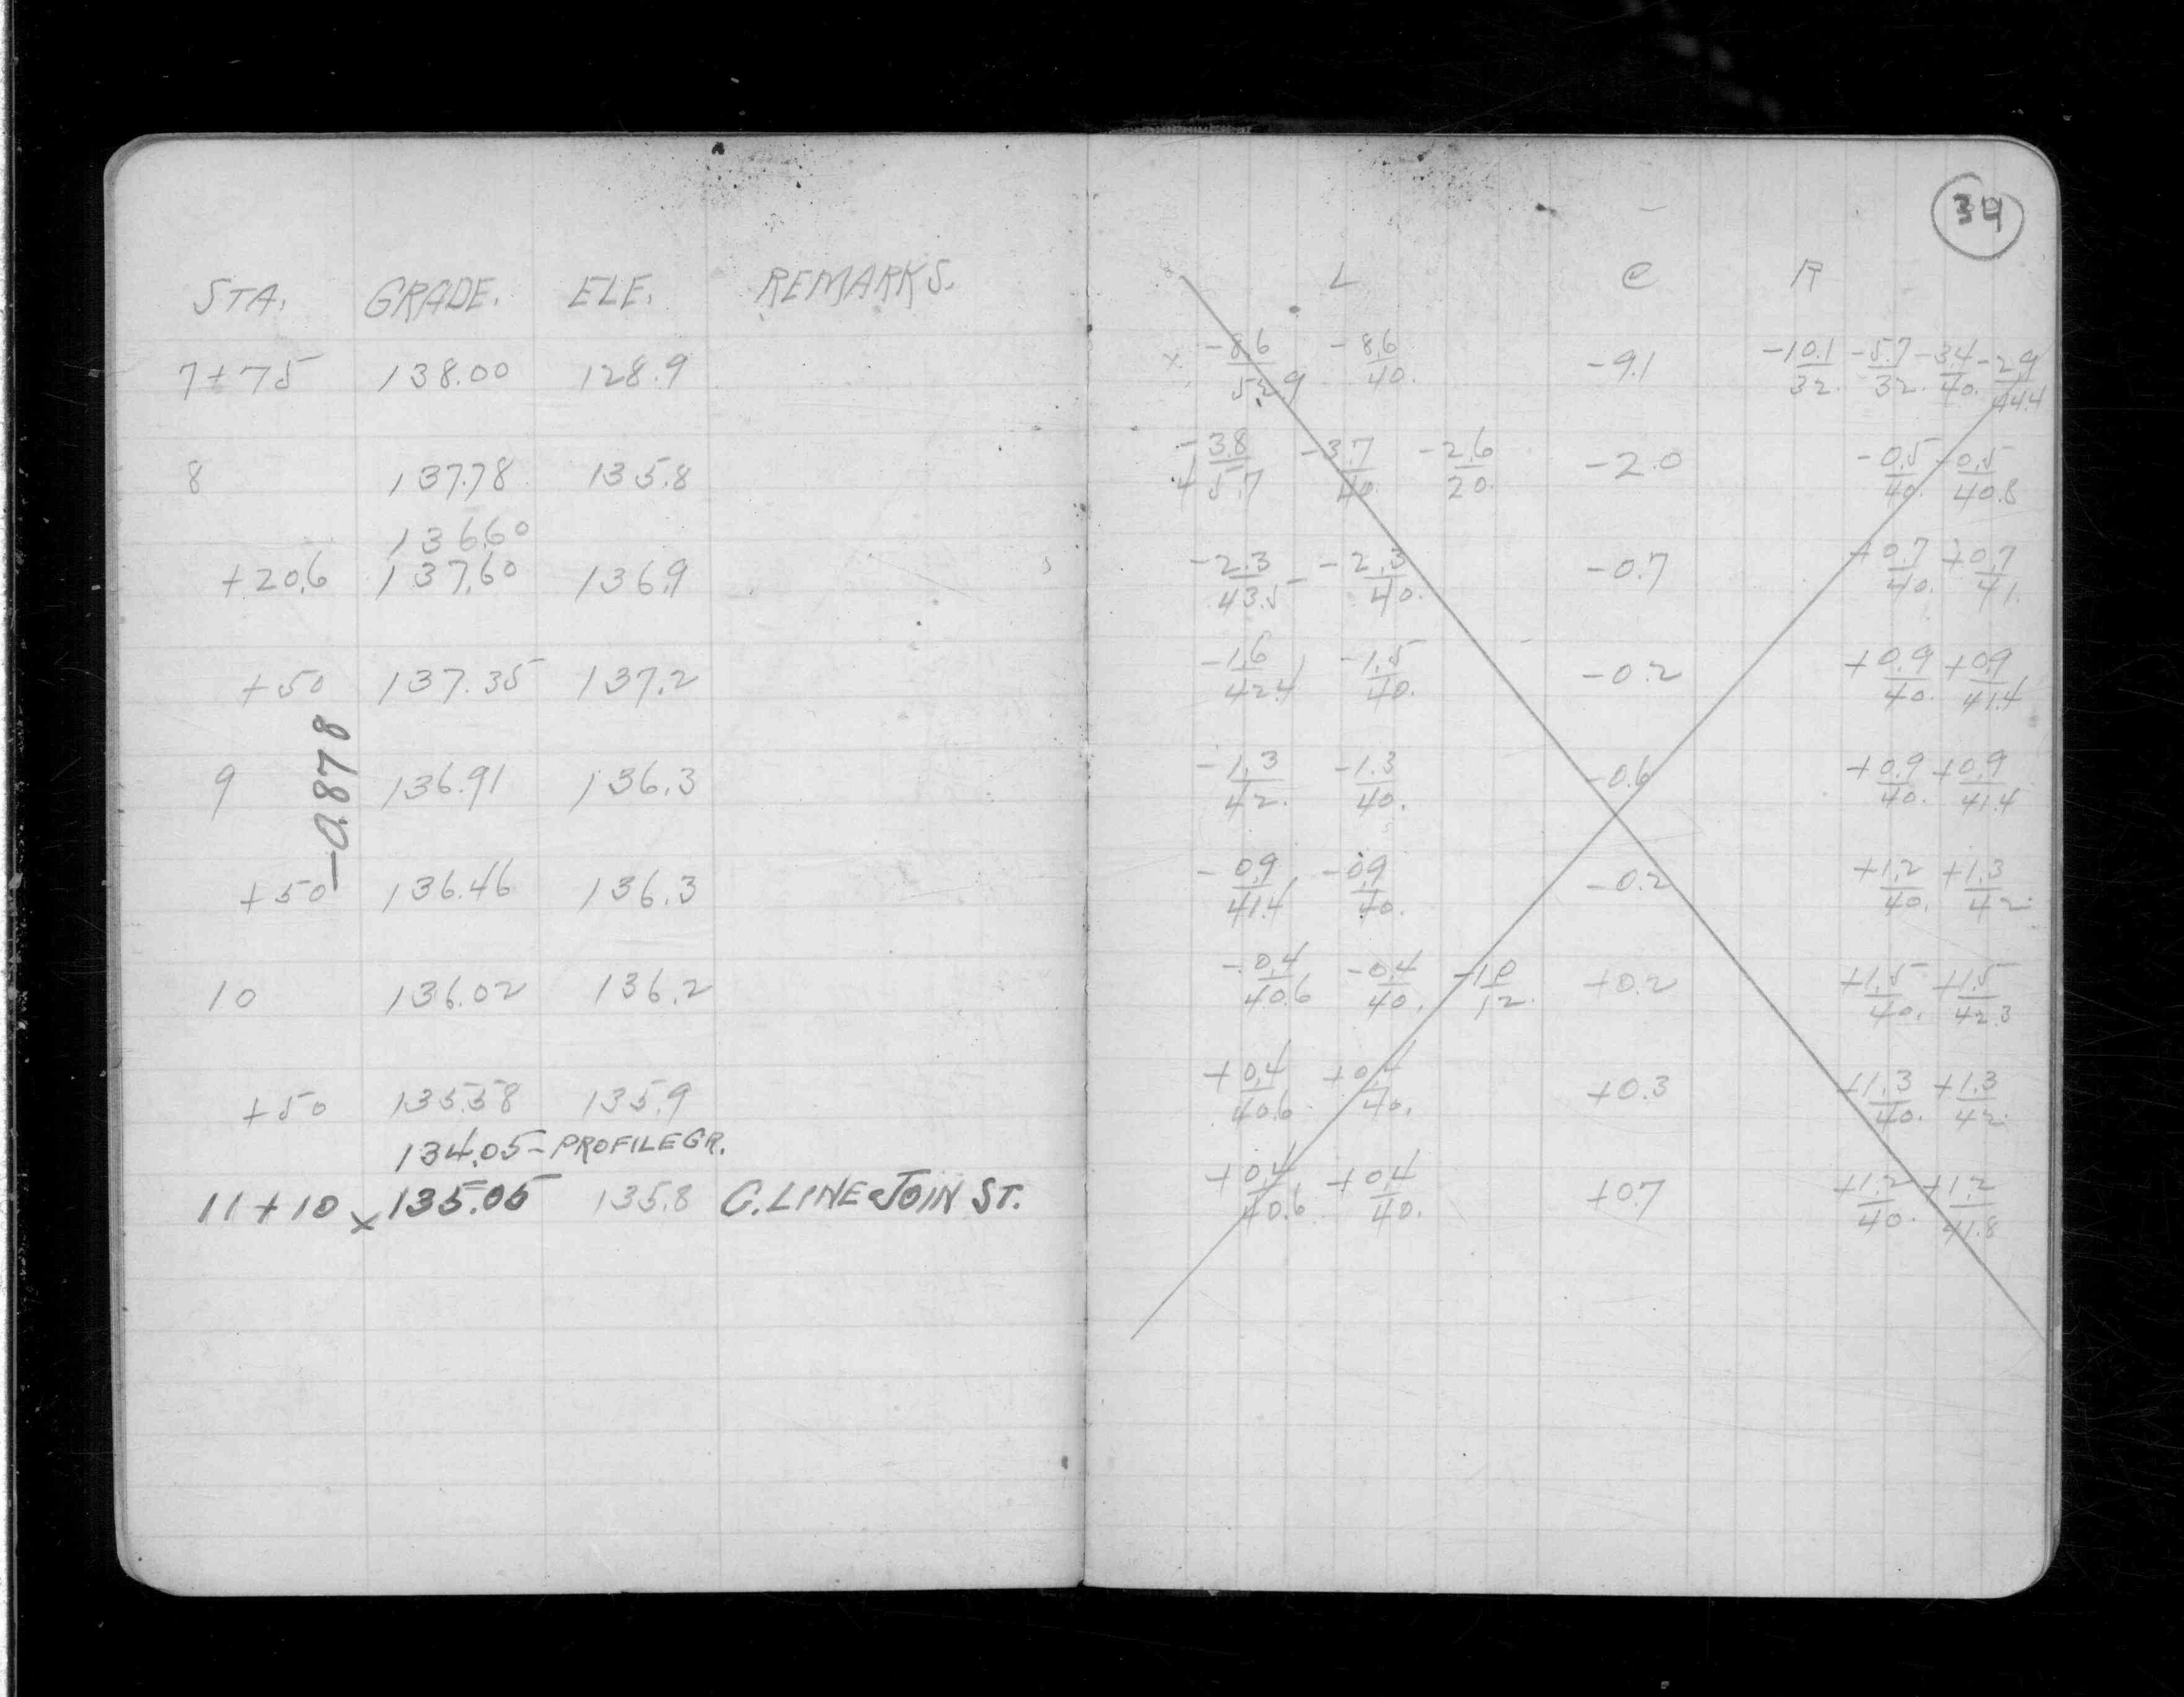 34
STA. GRADE. ELE. REMARKS. L C R
7+75 138.00 128.9 -8.6/52.9 -8.6/40. -9.1 -10.1/32. -5.7/32. -3.4/40. -2.9/44.4
8 137.78 135.8 -3.8/45.7 -3.7/40. -2.6/20. -2.0 -0.5/40. -0.5/40.8
136.60
+20.6 137.60 136.9 -2.3/43.5 -2.3/40. -0.7 +0.7/40. +0.7/41.
+50 137.35 137.2 -1.6/42.4 -1.5/40. -0.2 +0.9/40. +0.9/41.4
-0.878
9 136.91 136.3 -1.3/42. -1.3/40. -0.6 +0.9/40. +0.9/41.4
+50 136.46 136.3 -0.9/41.4 -0.9/40. -0.2 +1.2/40. +1.3/42.
10 136.02 136.2 -0.4/40.6 -0.4/40. -1.0/12. +0.2 +1.5/40. +1.5/42.3
+50 135.58 135.9 +0.4/40.6 +0.4/40. +0.3 +1.3/40. +1.3/42.
134.05-PROFILE GR.
11+10 x 135.05 135.8 C. LINE JOIN ST. +0.4/40.6 +0.4/40. +0.7 +1.2/40. +1.2/41.8